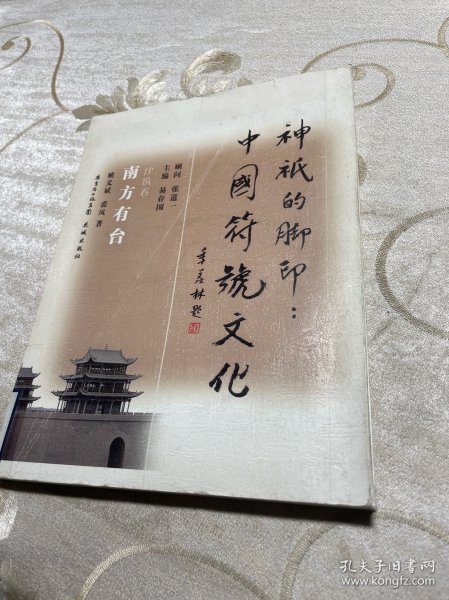 神祇的脚印：
中國符號文化
季羡林题
顾问 张道一
主编 易存国
建筑卷
南方有台
姚义斌 裴凤 著
出版社
孔夫子旧书网
www.kongfz.com